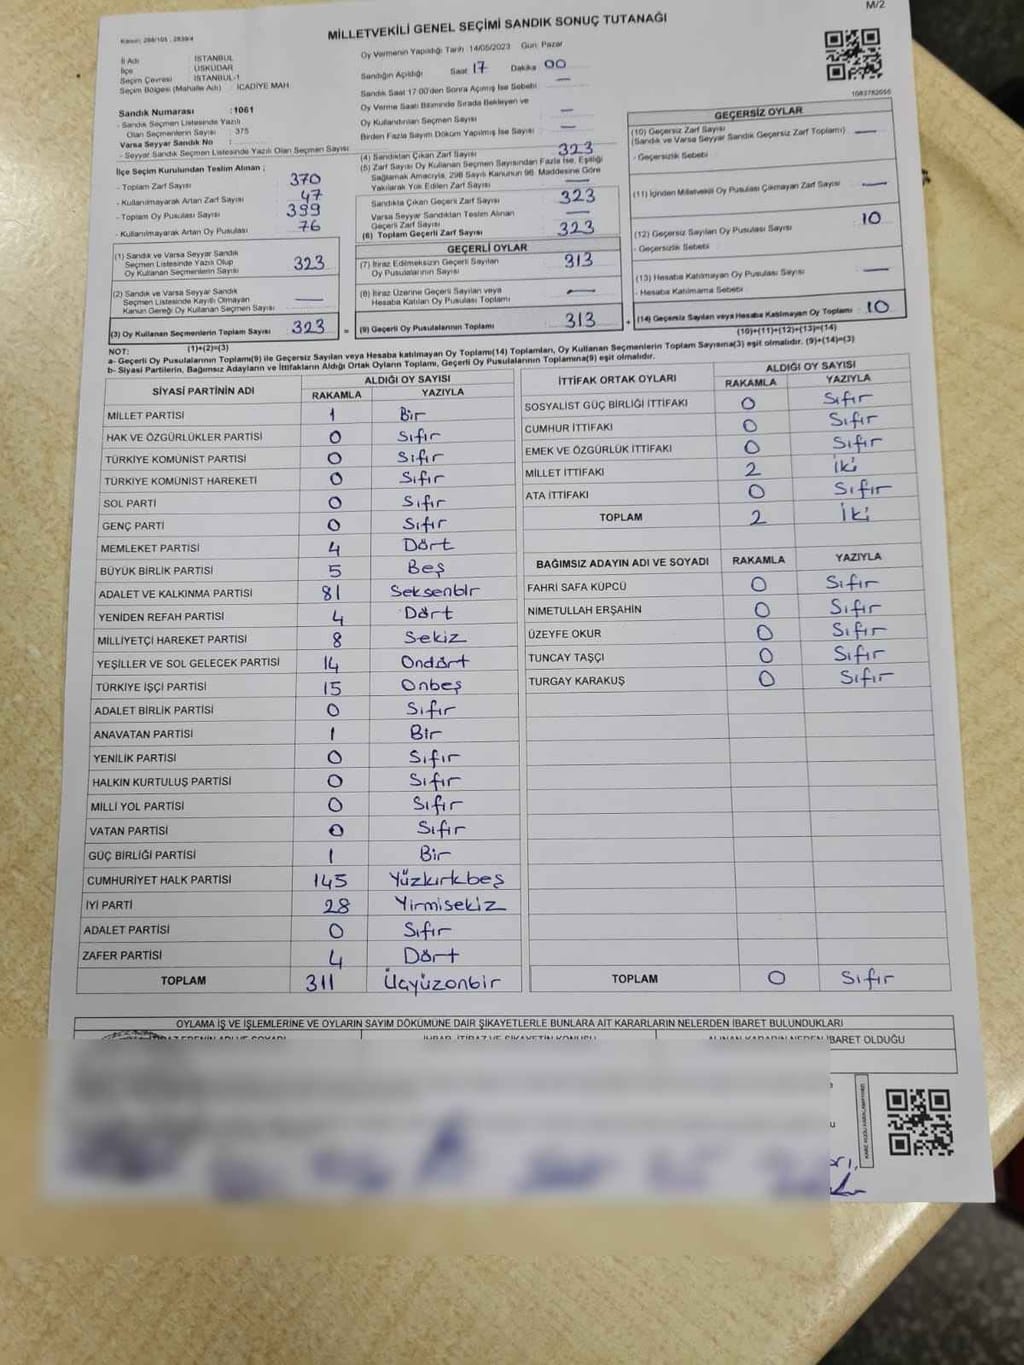 M/2
MİLLETVEKİLİ GENEL SEÇİMİ SANDIK SONUÇ TUTANAĞI
Kanun: 298/105 , 2839/4
İl Adı : İSTANBUL
İlçe : ÜSKÜDAR
Seçim Çevresi : İSTANBUL-1
Seçim Bölgesi (Mahalle Adı) : İCADİYE MAH.
Oy Vermenin Yapıldığı Tarih 14/05/2023 Gün: Pazar
Sandığın Açıldığı Saat 17 Dakika 00
Sandık Saat 17:00'den Sonra Açılmış İse Sebebi —
Oy Verme Saati Bitiminde Sırada Bekleyen ve
Oy Kullandırılan Seçmen Sayısı —
Birden Fazla Sayım Döküm Yapılmış İse Sayısı —
Sandık Numarası : 1061
- Sandık Seçmen Listesinde Yazılı
Olan Seçmenlerin Sayısı : 375
Varsa Seyyar Sandık No :
- Seyyar Sandık Seçmen Listesinde Yazılı Olan Seçmen Sayısı
İlçe Seçim Kurulundan Teslim Alınan ;
- Toplam Zarf Sayısı 370
- Kullanılmayarak Artan Zarf Sayısı 47
- Toplam Oy Pusulası Sayısı 399
- Kullanılmayarak Artan Oy Pusulası 76
(1) Sandık ve Varsa Seyyar Sandık
Seçmen Listesinde Yazılı Olup
Oy Kullanan Seçmenlerin Sayısı 323
(2) Sandık ve Varsa Seyyar Sandık
Seçmen Listesinde Kayıtlı Olmayan
Kanun Gereği Oy Kullanan Seçmen Sayısı —
(3) Oy Kullanan Seçmenlerin Toplam Sayısı 323 =
(1)+(2)=(3)
(4) Sandıktan Çıkan Zarf Sayısı 323
(5) Zarf Sayısı Oy Kullanan Seçmen Sayısından Fazla İse, Eşitliği
Sağlamak Amacıyla, 298 Sayılı Kanunun 98. Maddesine Göre
Yakılarak Yok Edilen Zarf Sayısı —
Sandıkta Çıkan Geçerli Zarf Sayısı 323
Varsa Seyyar Sandıktan Teslim Alınan
Geçerli Zarf Sayısı —
(6) Toplam Geçerli Zarf Sayısı 323
GEÇERLİ OYLAR
(7) İtiraz Edilmeksizin Geçerli Sayılan
Oy Pusulalarının Sayısı 313
(8) İtiraz Üzerine Geçerli Sayılan veya
Hesaba Katılan Oy Pusulası Toplamı —
(9) Geçerli Oy Pusulalarının Toplamı 313 +
GEÇERSİZ OYLAR
(10) Geçersiz Zarf Sayısı
(Sandık ve Varsa Seyyar Sandık Geçersiz Zarf Toplamı) —
- Geçersizlik Sebebi
(11) İçinden Milletvekili Oy Pusulası Çıkmayan Zarf Sayısı —
(12) Geçersiz Sayılan Oy Pusulası Sayısı 10
- Geçersizlik Sebebi
(13) Hesaba Katılmayan Oy Pusulası Sayısı —
- Hesaba Katılmama Sebebi
(14) Geçersiz Sayılan veya Hesaba Katılmayan Oy Toplamı : 10
(10)+(11)+(12)+(13)=(14)
NOT:
a- Geçerli Oy Pusulalarının Toplamı(9) ile Geçersiz Sayılan veya Hesaba katılmayan Oy Toplamı(14) Toplamları, Oy Kullanan Seçmenlerin Toplam Sayısına(3) eşit olmalıdır. (9)+(14)=(3)
b- Siyasi Partilerin, Bağımsız Adayların ve İttifakların Aldığı Ortak Oyların Toplamı, Geçerli Oy Pusulalarının Toplamına(9) eşit olmalıdır.
SİYASİ PARTİNİN ADI ALDIĞI OY SAYISI
RAKAMLA YAZIYLA
MİLLET PARTİSİ 1 Bir
HAK VE ÖZGÜRLÜKLER PARTİSİ 0 Sıfır
TÜRKİYE KOMÜNİST PARTİSİ 0 Sıfır
TÜRKİYE KOMÜNİST HAREKETİ 0 Sıfır
SOL PARTİ 0 Sıfır
GENÇ PARTİ 0 Sıfır
MEMLEKET PARTİSİ 4 Dört
BÜYÜK BİRLİK PARTİSİ 5 Beş
ADALET VE KALKINMA PARTİSİ 81 Seksenbir
YENİDEN REFAH PARTİSİ 4 Dört
MİLLİYETÇİ HAREKET PARTİSİ 8 Sekiz
YEŞİLLER VE SOL GELECEK PARTİSİ 14 Ondört
TÜRKİYE İŞÇİ PARTİSİ 15 Onbeş
ADALET BİRLİK PARTİSİ 0 Sıfır
ANAVATAN PARTİSİ 1 Bir
YENİLİK PARTİSİ 0 Sıfır
HALKIN KURTULUŞ PARTİSİ 0 Sıfır
MİLLİ YOL PARTİSİ 0 Sıfır
VATAN PARTİSİ 0 Sıfır
GÜÇ BİRLİĞİ PARTİSİ 1 Bir
CUMHURİYET HALK PARTİSİ 145 Yüzkırkbeş
İYİ PARTİ 28 Yirmisekiz
ADALET PARTİSİ 0 Sıfır
ZAFER PARTİSİ 4 Dört
TOPLAM 311 Üçyüzonbir
İTTİFAK ORTAK OYLARI ALDIĞI OY SAYISI
RAKAMLA YAZIYLA
SOSYALİST GÜÇ BİRLİĞİ İTTİFAKI 0 Sıfır
CUMHUR İTTİFAKI 0 Sıfır
EMEK VE ÖZGÜRLÜK İTTİFAKI 0 Sıfır
MİLLET İTTİFAKI 2 İki
ATA İTTİFAKI 0 Sıfır
TOPLAM 2 İki
BAĞIMSIZ ADAYIN ADI VE SOYADI RAKAMLA YAZIYLA
FAHRİ SAFA KÜPCÜ 0 Sıfır
NİMETULLAH ERŞAHİN 0 Sıfır
ÜZEYFE OKUR 0 Sıfır
TUNCAY TAŞÇI 0 Sıfır
TURGAY KARAKUŞ 0 Sıfır
TOPLAM 0 Sıfır
OYLAMA İŞ VE İŞLEMLERİNE VE OYLARIN SAYIM DÖKÜMÜNE DAİR ŞİKAYETLERLE BUNLARA AİT KARARLARIN NELERDEN İBARET BULUNDUKLARI
İTİRAZ EDENİN ADI VE SOYADI İHBAR, İTİRAZ VE ŞİKAYETİN KONUSU ALINAN KARARIN NEDEN İBARET OLDUĞU